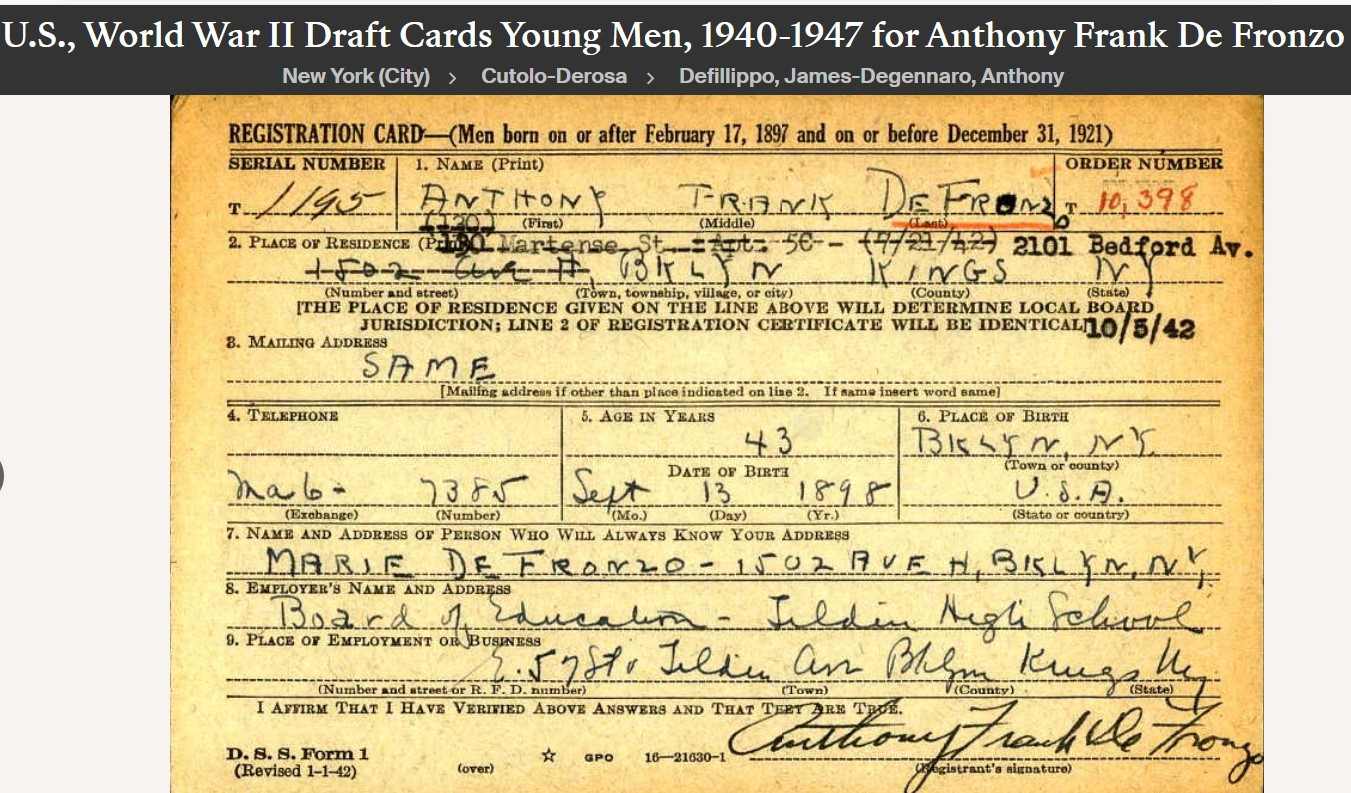 U.S., World War II Draft Cards Young Men, 1940-1947 for Anthony Frank De Fronzo
New York (City) > Cutolo-Derosa > Defillippo, James-Degennaro, Anthony
REGISTRATION CARD—(Men born on or after February 17, 1897 and on or before December 31, 1921)
SERIAL NUMBER 1. NAME (Print) ORDER NUMBER
T 1195 ANTHONY FRANK DE FRONZO T 10,398
(130) (First) (Middle) (Last)
2. PLACE OF RESIDENCE (Print) 130 Martense St. - Apt. 5C - (7/21/42) 2101 Bedford Av.
1502 Ave H, BKLYN KINGS NY
(Number and street) (Town, township, village, or city) (County) (State)
[THE PLACE OF RESIDENCE GIVEN ON THE LINE ABOVE WILL DETERMINE LOCAL BOARD
JURISDICTION; LINE 2 OF REGISTRATION CERTIFICATE WILL BE IDENTICAL] 10/5/42
3. MAILING ADDRESS
SAME
[Mailing address if other than place indicated on line 2. If same insert word same]
4. TELEPHONE 5. AGE IN YEARS 6. PLACE OF BIRTH
43 BKLYN, NY.
DATE OF BIRTH (Town or county)
Ma 6- 7385 Sept 13 1898 U.S.A.
(Exchange) (Number) (Mo.) (Day) (Yr.) (State or country)
7. NAME AND ADDRESS OF PERSON WHO WILL ALWAYS KNOW YOUR ADDRESS
MARIE DE FRONZO - 1502 AVE H, BKLYN, NY.
8. EMPLOYER'S NAME AND ADDRESS
Board of Education - Tilden High School
9. PLACE OF EMPLOYMENT OR BUSINESS
E. 57 St & Tilden Ave Bklyn Kings Ny
(Number and street or R. F. D. number) (Town) (County) (State)
I AFFIRM THAT I HAVE VERIFIED ABOVE ANSWERS AND THAT THEY ARE TRUE.
Anthony Frank De Fronzo
D. S. S. Form 1
(Revised 1-1-42) (over) ☆ GPO 16—21630-1 (Registrant's signature)